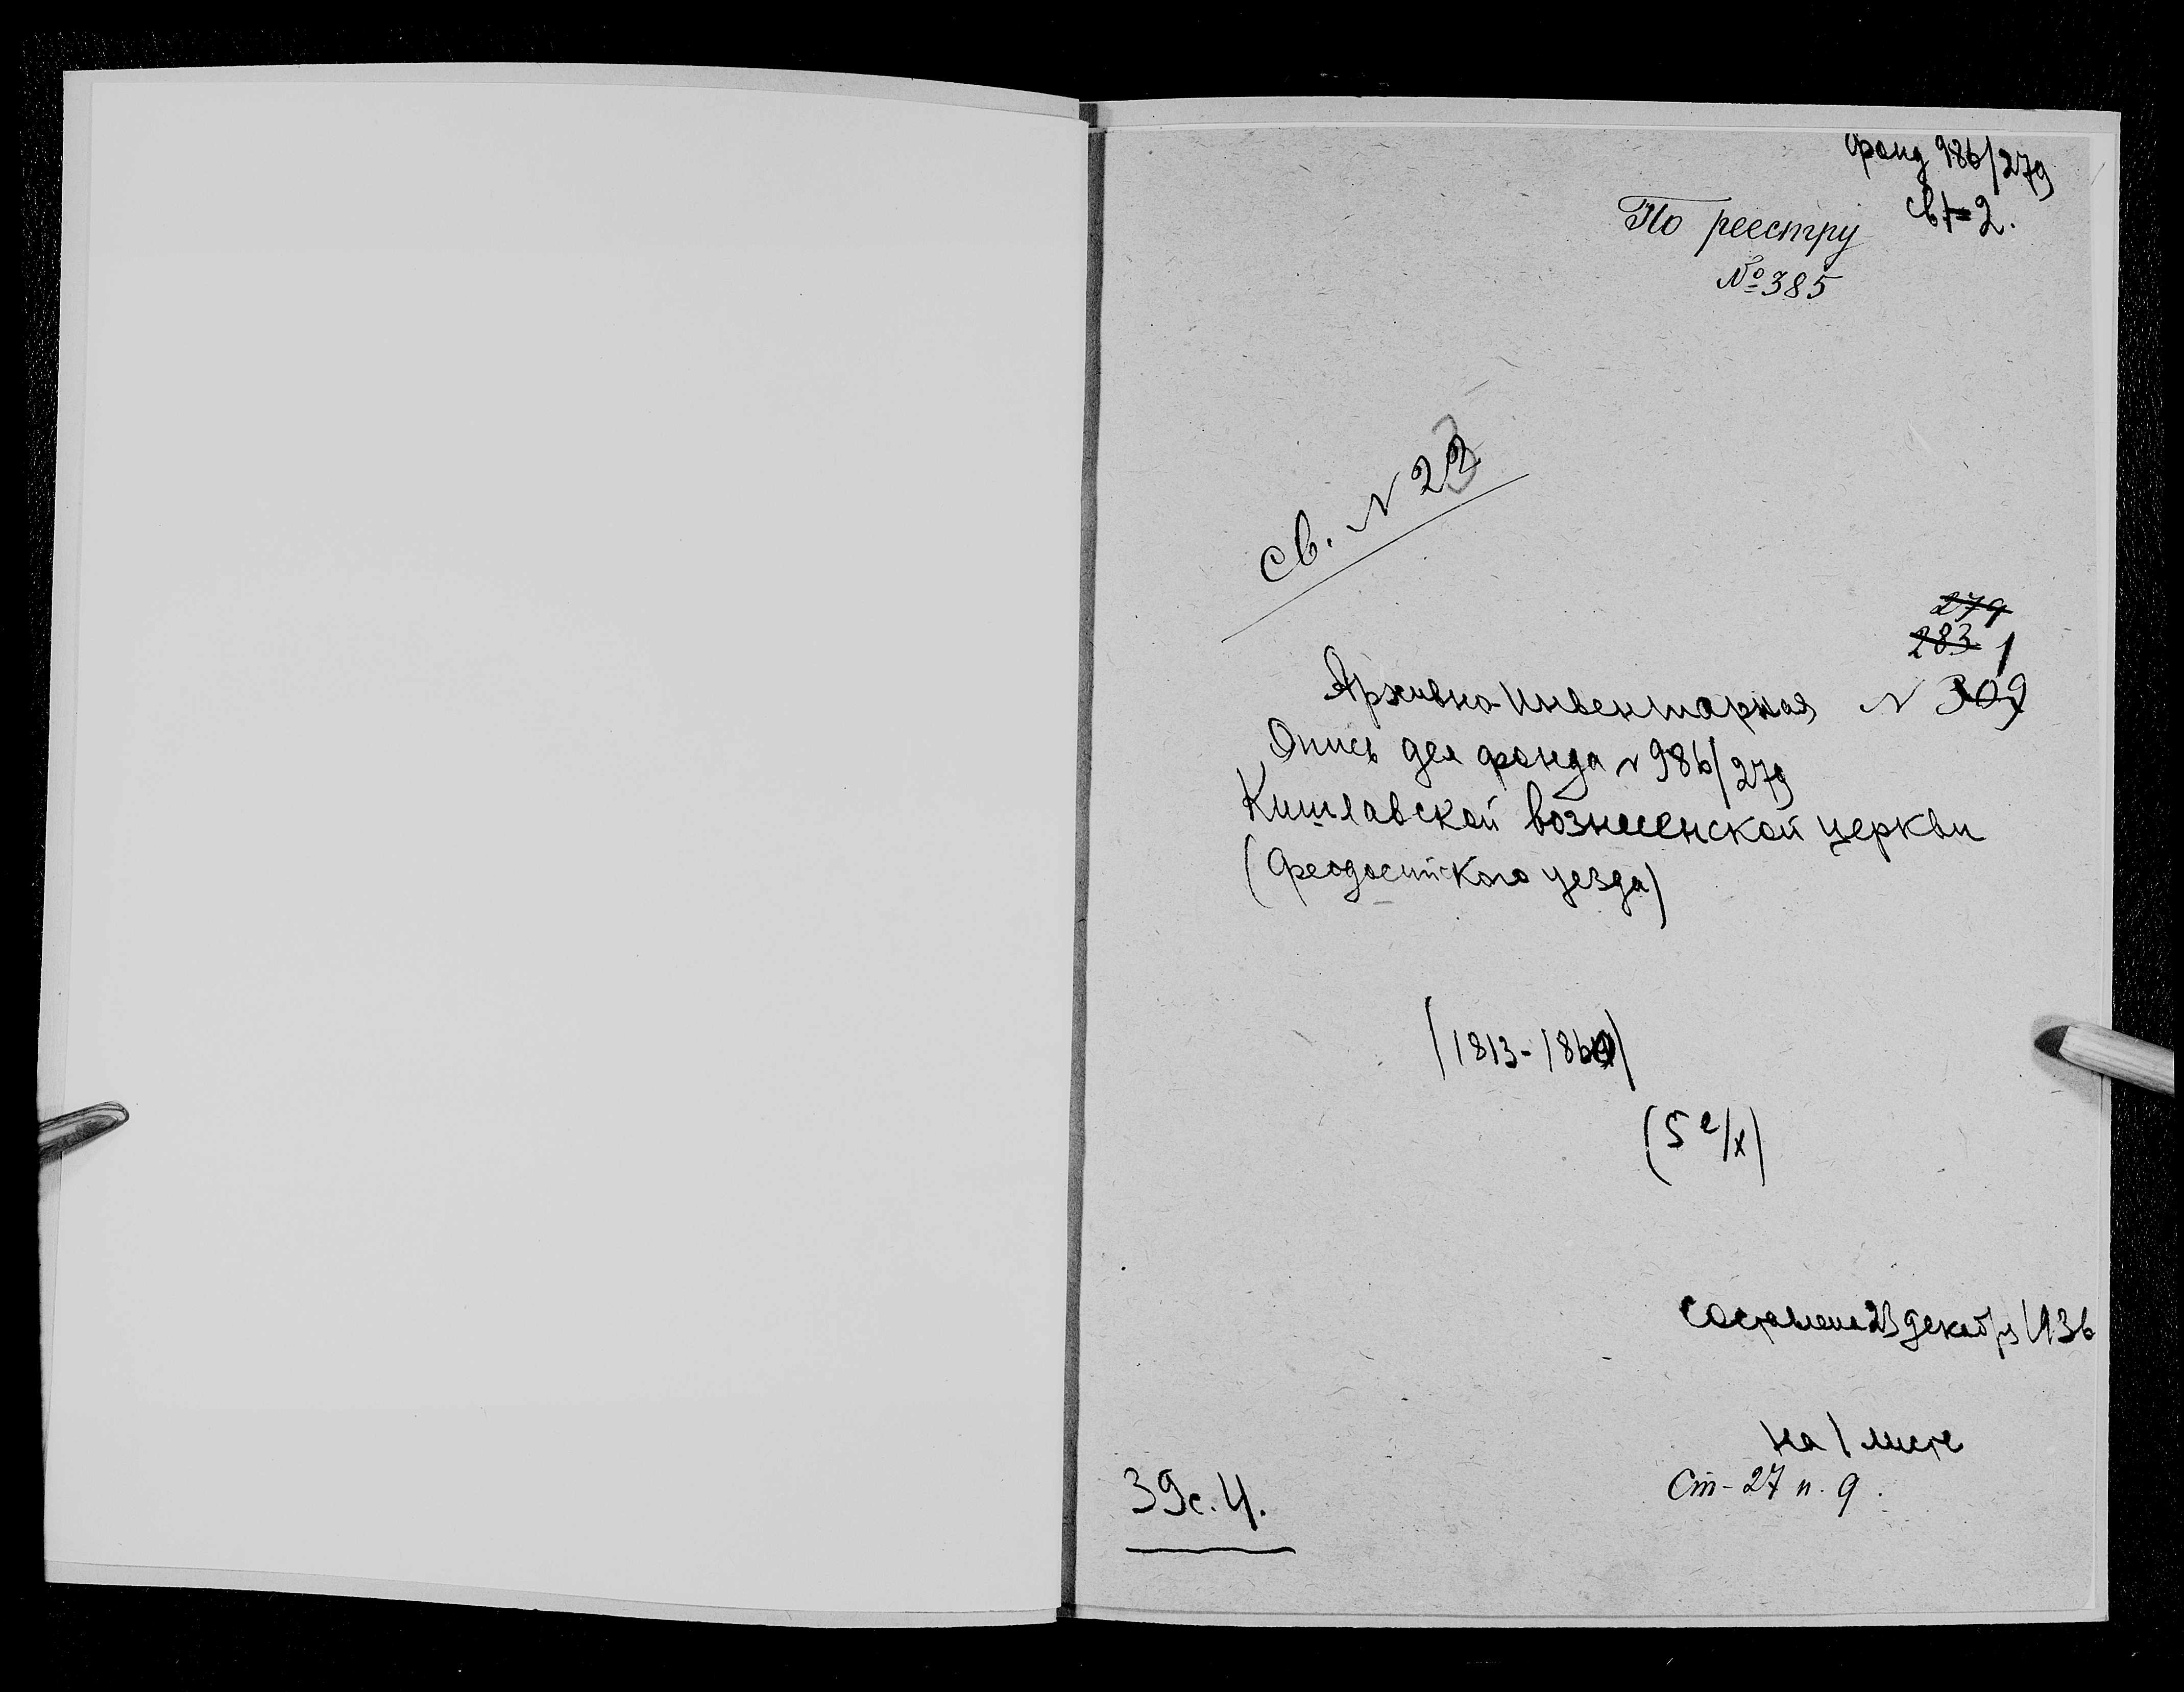 фонд 986/279
св 2.
По реестру
№ 385
св. N 23
279
283 1
Архивно-инвентарная N 309
Опись дел фонда N 986/279
Кишлавской вознесенской церкви
(Феодосийского уезда)
(1813-1860)
(5 е/х)
составлена 23 декабря 1936
на 1 листе
Ст-27 п. 9.
39с.Ч.